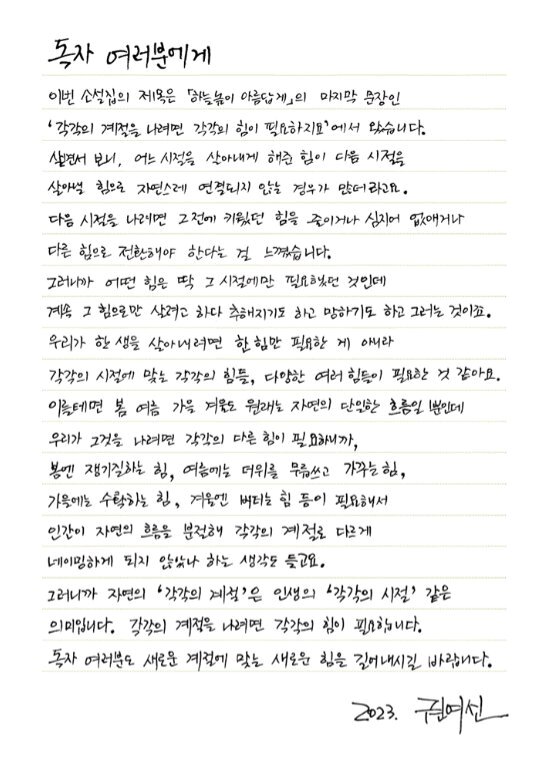 독자 여러분에게
이번 소설집의 제목은 「하늘높이 아름답게」의 마지막 문장인
'각각의 계절을 나려면 각각의 힘이 필요하지요'에서 왔습니다.
살면서 보니, 어느 시절을 살아내게 해준 힘이 다음 시절을
살아낼 힘으로 자연스레 연결되지 않는 경우가 많더라고요.
다음 시절을 나려면 그전에 키웠던 힘을 줄이거나 심지어 없애거나
다른 힘으로 전환해야 한다는 걸 느꼈습니다.
그러니까 어떤 힘은 딱 그 시절에만 필요했던 것인데
계속 그 힘으로만 살려고 하다 추해지기도 하고 망하기도 하고 그러는 것이죠.
우리가 한 생을 살아내려면 한 힘만 필요한 게 아니라
각각의 시절에 맞는 각각의 힘들, 다양한 여러 힘들이 필요한 것 같아요.
이를테면 봄 여름 가을 겨울도 원래는 자연의 단일한 흐름일 뿐인데
우리가 그것을 나려면 각각의 다른 힘이 필요하니까,
봄엔 쟁기질하는 힘, 여름에는 더위를 무릅쓰고 가꾸는 힘,
가을에는 수확하는 힘, 겨울엔 버티는 힘 등이 필요해서
인간이 자연의 흐름을 분절해 각각의 계절로 다르게
네이밍하게 되지 않았나 하는 생각도 들고요.
그러니까 자연의 '각각의 계절'은 인생의 '각각의 시절' 같은
의미입니다. 각각의 계절을 나려면 각각의 힘이 필요합니다.
독자 여러분도 새로운 계절에 맞는 새로운 힘을 길어내시길 바랍니다.
2023. 권여선